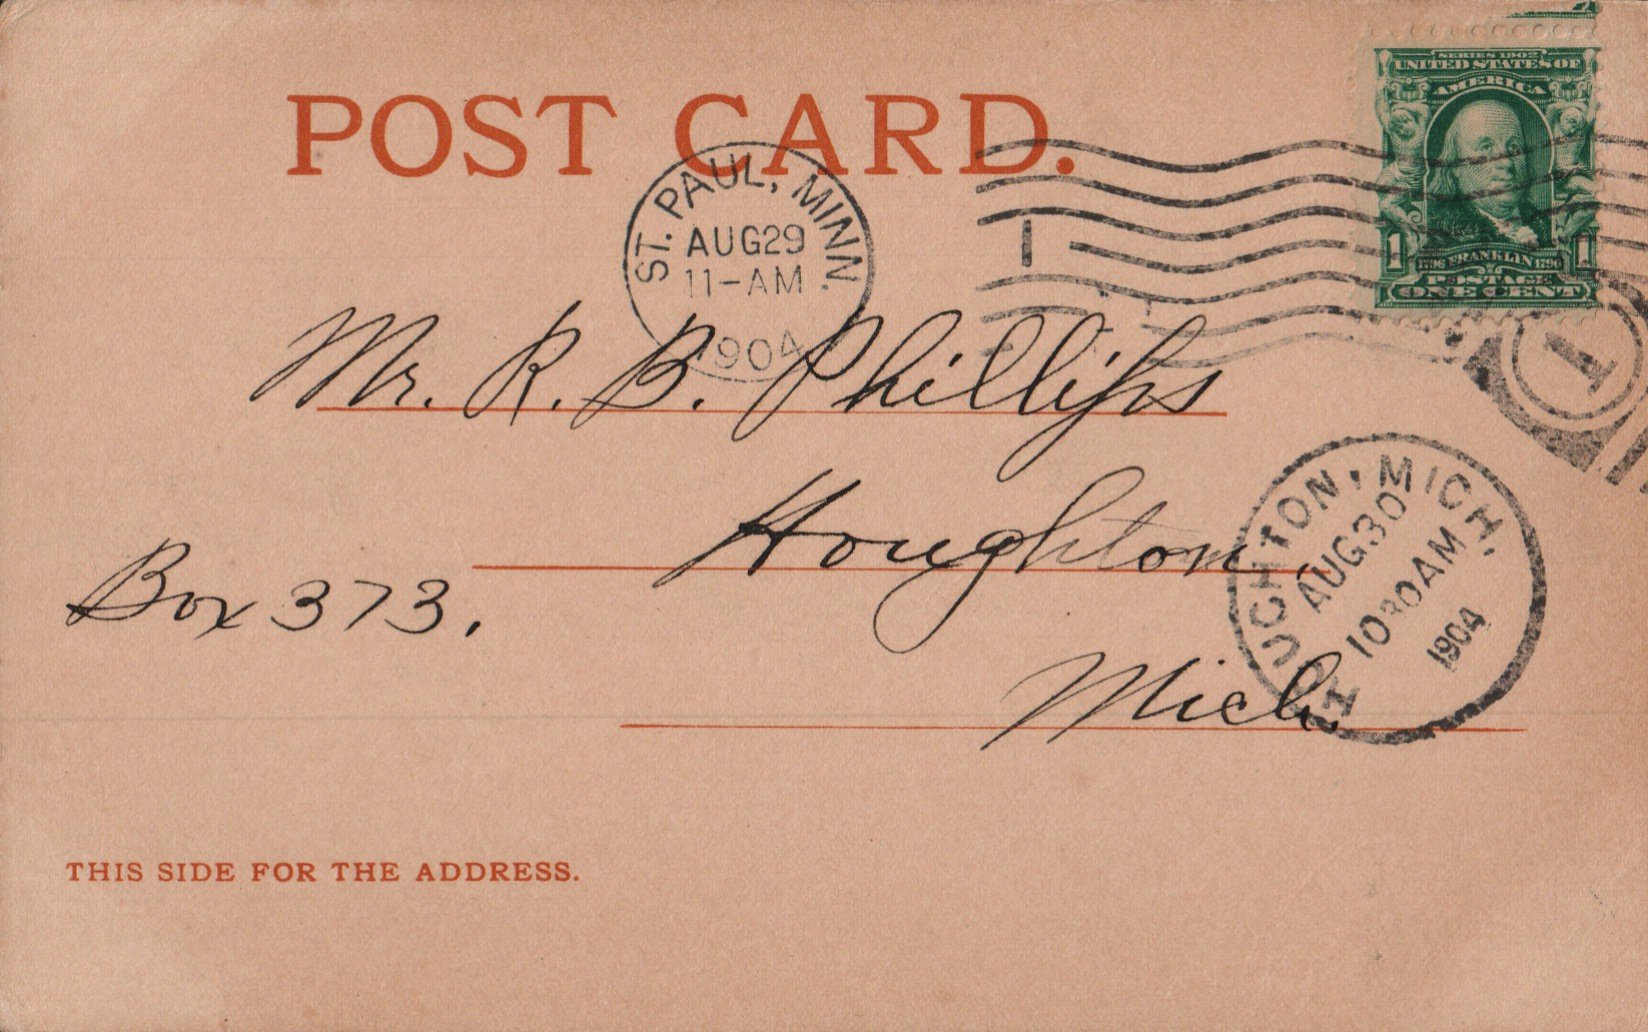 POST CARD.
SERIES 1902
UNITED STATES OF
AMERICA
1 1
1706 FRANKLIN 1790
POSTAGE
ONE CENT
ST. PAUL, MINN.
AUG 29
11-AM
1904
1
1
Mr. R. B. Phillips
Houghton.
Box 373.
Mich.
HOUGHTON, MICH.
AUG 30
1030AM
1904
THIS SIDE FOR THE ADDRESS.